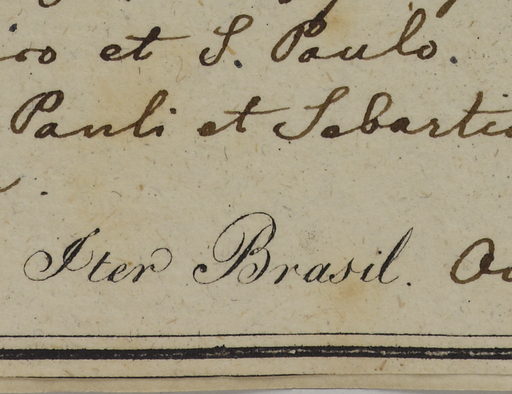 et S. Paulo.
Pauli et Sebasti
Iter Brasil.